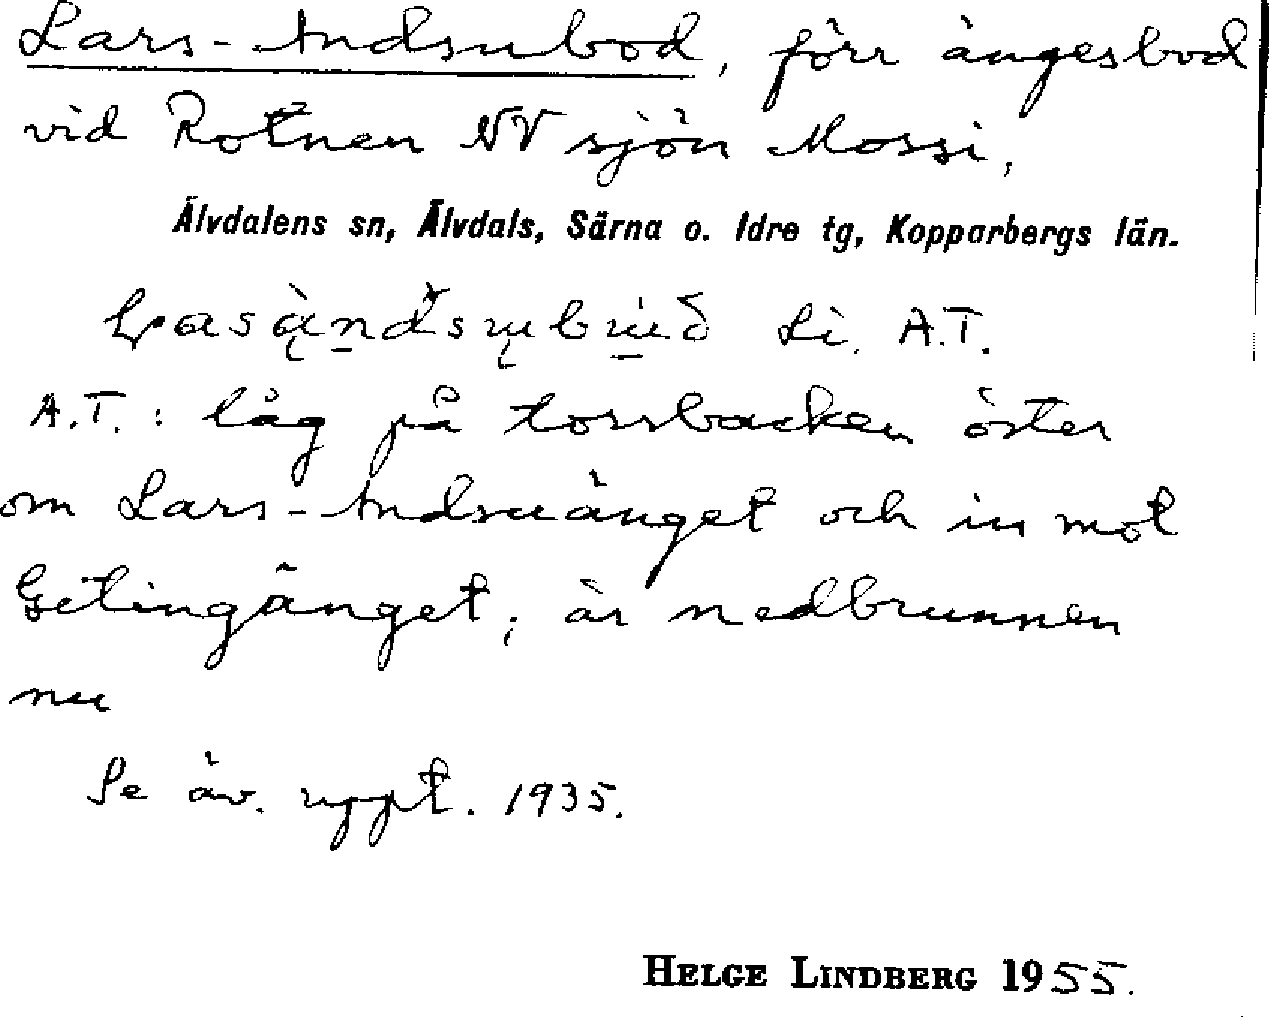 Lars-Andsubod, förr ängesbod
vid Rotnen NV sjön Mossi,
Älvdalens sn, Älvdals, Särna o. Idre tg, Kopparbergs län.
Li. A.T.
A.T.: låg på torrbacken öster
om Lars-Andsuänget och in mot
Getingänget; är nedbrunnen
nu
Se äv. uppt. 1935.
HELGE LINDBERG 1955.